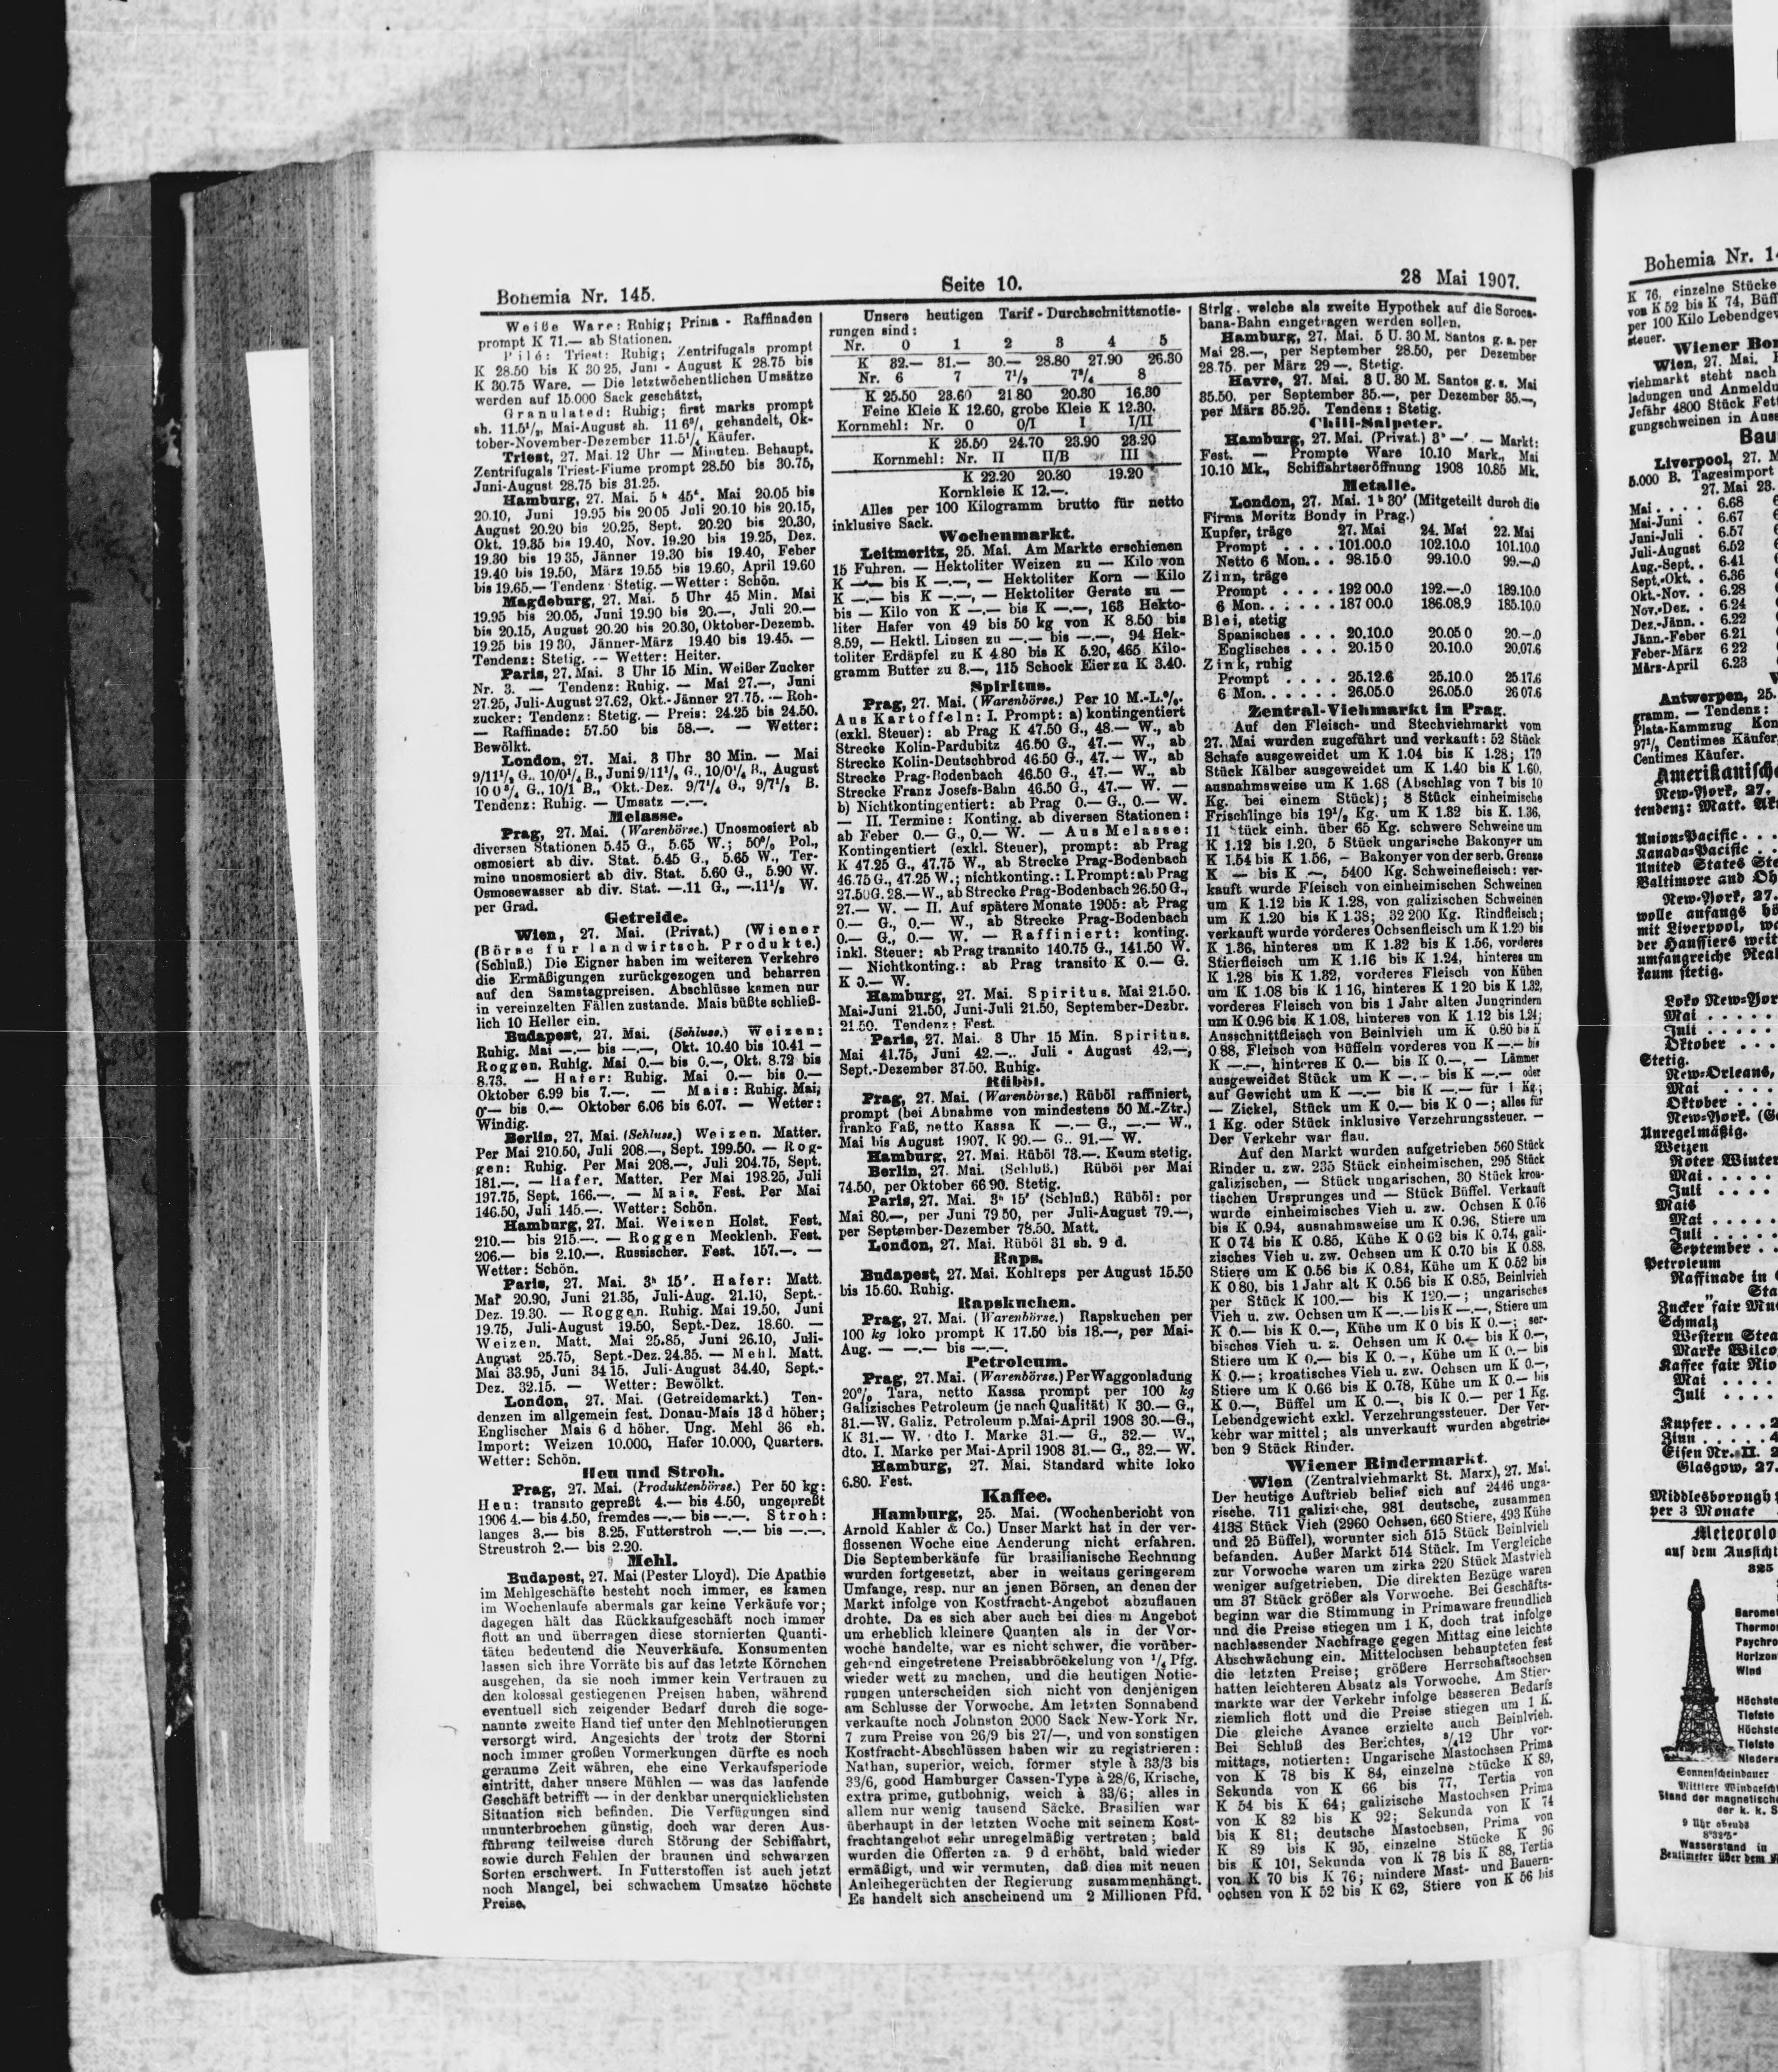 Bohemia Nr. 145.
Seite 10.
28 Mai 1907.
Weiße Ware: Ruhig; Prima - Raffinaden
prompt K 71.— ab Stationen.
Pilé: Triest: Ruhig; Zentrifugals prompt
K 28.50 bis K 30 25, Juni - August K 28.75 bis
K 30.75 Ware. — Die letztwöchentlichen Umsätze
werden auf 15.000 Sack geschätzt,
Granulated: Ruhig; first marks prompt
sh. 11.5¹/₂, Mai-August sh. 11 6³/₄ gehandelt, Ok-
tober-November-Dezember 11.5¹/₄ Käufer.
Triest, 27. Mai. 12 Uhr — Minuten. Behaupt.
Zentrifugals Triest-Fiume prompt 28.50 bis 30.75,
Juni-August 28.75 bis 31.25.
Hamburg, 27. Mai. 5ʰ 45'. Mai 20.05 bis
20.10, Juni 19.95 bis 20 05 Juli 20.10 bis 20.15,
August 20.20 bis 20.25, Sept. 20.20 bis 20.30,
Okt. 19.35 bis 19.40, Nov. 19.20 bis 19.25, Dez.
19.30 bis 19 35, Jänner 19.30 bis 19.40, Feber
19.40 bis 19.50, März 19.55 bis 19.60, April 19.60
bis 19.65.— Tendenz: Stetig. — Wetter: Schön.
Magdeburg, 27. Mai. 5 Uhr 45 Min. Mai
19.95 bis 20.05, Juni 19.90 bis 20.—, Juli 20.—
bis 20.15, August 20.20 bis 20.30, Oktober-Dezemb.
19.25 bis 19 30, Jänner-März 19.40 bis 19.45. —
Tendenz: Stetig. — Wetter: Heiter.
Paris, 27. Mai. 3 Uhr 15 Min. Weißer Zucker
Nr. 3. — Tendenz: Ruhig. — Mai 27.—, Juni
27.25, Juli-August 27.62, Okt.-Jänner 27.75. — Roh-
zucker: Tendenz: Stetig. — Preis: 24.25 bis 24.50.
— Raffinade: 57.50 bis 58.—. — Wetter:
Bewölkt.
London, 27. Mai. 3 Uhr 30 Min. — Mai
9/11¹/₂ G., 10/0¹/₄ B., Juni 9/11¹/₂ G., 10/0¹/₄ B., August
10 0³/₄ G., 10/1 B., Okt.-Dez. 9/7¹/₄ G., 9/7¹/₂ B.
Tendenz: Ruhig. — Umsatz —.—.
Melasse.
Prag, 27. Mai. (Warenbörse.) Unosmosiert ab
diversen Stationen 5.45 G., 5.65 W.; 50% Pol.,
osmosiert ab div. Stat. 5.45 G., 5.65 W., Ter-
mine unosmosiert ab div. Stat. 5.60 G., 5.90 W.
Osmosewasser ab div. Stat. —.11 G., —.11¹/₂ W.
per Grad.
Getreide.
Wien, 27. Mai. (Privat.) (Wiener
(Börse für landwirtsch. Produkte.)
(Schluß.) Die Eigner haben im weiteren Verkehre
die Ermäßigungen zurückgezogen und beharren
auf den Samstagpreisen. Abschlüsse kamen nur
in vereinzelten Fällen zustande. Mais büßte schließ-
lich 10 Heller ein.
Budapest, 27. Mai. (Schluss.) Weizen:
Ruhig. Mai —.— bis —.—, Okt. 10.40 bis 10.41 —
Roggen. Ruhig. Mai 0.— bis 0.—, Okt. 8.72 bis
8.73. — Hafer: Ruhig. Mai 0.— bis 0.—
Oktober 6.99 bis 7.—. — Mais: Ruhig. Mai;
0'— bis 0.— Oktober 6.06 bis 6.07. — Wetter:
Windig.
Berlin, 27. Mai. (Schluss.) Weizen. Matter.
Per Mai 210.50, Juli 208.—, Sept. 199.50. — Rog-
gen: Ruhig. Per Mai 208.—, Juli 204.75, Sept.
181.—. — Hafer. Matter. Per Mai 198.25, Juli
197.75, Sept. 166.—. — Mais. Fest. Per Mai
146.50, Juli 145.—. Wetter: Schön.
Hamburg, 27. Mai. Weizen Holst. Fest.
210.— bis 215.—. — Roggen Mecklenb. Fest.
206.— bis 2.10.—. Russischer. Fest. 157.—. —
Wetter: Schön.
Paris, 27. Mai. 3ʰ 15'. Hafer: Matt.
Mai 20.90, Juni 21.35, Juli-Aug. 21.10, Sept.-
Dez. 19.30. — Roggen. Ruhig. Mai 19.50, Juni
19.75, Juli-August 19.50, Sept.-Dez. 18.60. —
Weizen. Matt. Mai 25.85, Juni 26.10, Juli-
August 25.75, Sept.-Dez. 24.35. — Mehl. Matt.
Mai 33.95, Juni 34 15. Juli-August 34.40, Sept.-
Dez. 32.15. — Wetter: Bewölkt.
London, 27. Mai. (Getreidemarkt.) Ten-
denzen im allgemein fest. Donau-Mais 13 d höher;
Englischer Mais 6 d höher. Ung. Mehl 36 sh.
Import: Weizen 10.000, Hafer 10.000, Quarters.
Wetter: Schön.
Heu und Stroh.
Prag, 27. Mai. (Produktenbörse.) Per 50 kg:
Heu: transito gepreßt 4.— bis 4.50, ungepreßt
1906 4.— bis 4.50, fremdes —.— bis —.—. Stroh:
langes 3.— bis 3.25, Futterstroh —.— bis —.—.
Streustroh 2.— bis 2.20.
Mehl.
Budapest, 27. Mai (Pester Lloyd). Die Apathie
im Mehlgeschäfte besteht noch immer, es kamen
im Wochenlaufe abermals gar keine Verkäufe vor;
dagegen hält das Rückkaufgeschäft noch immer
flott an und überragen diese stornierten Quanti-
täten bedeutend die Neuverkäufe. Konsumenten
lassen sich ihre Vorräte bis auf das letzte Körnchen
ausgehen, da sie noch immer kein Vertrauen zu
den kolossal gestiegenen Preisen haben, während
eventuell sich zeigender Bedarf durch die soge-
nannte zweite Hand tief unter den Mehlnotierungen
versorgt wird. Angesichts der trotz der Storni
noch immer großen Vormerkungen dürfte es noch
geraume Zeit währen, ehe eine Verkaufsperiode
eintritt, daher unsere Mühlen — was das laufende
Geschäft betrifft — in der denkbar unerquicklichsten
Situation sich befinden. Die Verfügungen sind
ununterbrochen günstig, doch war deren Aus-
führung teilweise durch Störung der Schiffahrt,
sowie durch Fehlen der braunen und schwarzen
Sorten erschwert. In Futterstoffen ist auch jetzt
noch Mangel, bei schwachem Umsatze höchste
Preise.
Unsere heutigen Tarif - Durchschnittsnotie-
rungen sind:
Nr. 0 1 2 3 4 5
K 32.— 31.— 30.— 28.80 27.90 26.30
Nr. 6 7 7¹/₂ 7³/₄ 8
K 25.50 23.60 21.80 20.30 16.30
Feine Kleie K 12.60, grobe Kleie K 12.30.
Kornmehl: Nr. 0 0/I I I/II
K 25.50 24.70 23.90 23.20
Kornmehl: Nr. II II/B III
K 22.20 20.80 19.20
Kornkleie K 12.—.
Alles per 100 Kilogramm brutto für netto
inklusive Sack.
Wochenmarkt.
Leitmeritz, 25. Mai. Am Markte erschienen
15 Fuhren. — Hektoliter Weizen zu — Kilo von
K —.— bis K —.—, — Hektoliter Korn — Kilo
K —.— bis K —.—, — Hektoliter Gerste zu —
bis — Kilo von K —.— bis K —.—, 163 Hekto-
liter Hafer von 49 bis 50 kg von K 8.50 bis
8.59, — Hektl. Linsen zu —.— bis —.—, 94 Hek-
toliter Erdäpfel zu K 4.80 bis K 5.20, 465 Kilo-
gramm Butter zu 3.—, 115 Schock Eier za K 3.40.
Spiritus.
Prag, 27. Mai. (Warenbörse.) Per 10 M.-L.%.
Aus Kartoffeln: I. Prompt: a) kontingentiert
(exkl. Steuer): ab Prag K 47.50 G., 48.— W., ab
Strecke Kolin-Pardubitz 46.50 G., 47.— W., ab
Strecke Kolin-Deutschbrod 46.50 G., 47.— W., ab
Strecke Prag-Bodenbach 46.50 G., 47.— W., ab
Strecke Franz Josefs-Bahn 46.50 G., 47.— W. —
b) Nichtkontingentiert: ab Prag 0.— G., 0.— W.
— II. Termine: Konting. ab diversen Stationen:
ab Feber 0.— G., 0.— W. — Aus Melasse:
Kontingentiert (exkl. Steuer), prompt: ab Prag
K 47.25 G., 47.75 W., ab Strecke Prag-Bodenbach
46.75 G., 47.25 W.; nichtkonting.: I. Prompt: ab Prag
27.50 G. 28.—W., ab Strecke Prag-Bodenbach 26.50 G.,
27.— W. — II. Auf spätere Monate 1905: ab Prag
0.— G., 0.— W., ab Strecke Prag-Bodenbach
0.— G., 0.— W. — Raffiniert: konting.
inkl. Steuer: ab Prag transito 140.75 G., 141.50 W.
— Nichtkonting.: ab Prag transito K 0.— G.
K 0.— W.
Hamburg, 27. Mai. Spiritus. Mai 21.50.
Mai-Juni 21.50, Juni-Juli 21.50, September-Dezbr.
21.50. Tendenz: Fest.
Paris, 27. Mai. 3 Uhr 15 Min. Spiritus.
Mai 41.75, Juni 42.—.. Juli - August 42.—,
Sept.-Dezember 37.50. Ruhig.
Rüböl.
Prag, 27. Mai. (Warenbörse.) Rüböl raffiniert,
prompt (bei Abnahme von mindestens 50 M.-Ztr.)
franko Faß, netto Kassa K —.— G., —.— W.,
Mai bis August 1907, K 90.— G.. 91.— W.
Hamburg, 27. Mai. Rüböl 73.—. Kaum stetig.
Berlin, 27. Mai. (Schluß.) Rüböl per Mai
74.50, per Oktober 66 90. Stetig.
Paris, 27. Mai. 3ʰ 15' (Schluß.) Rüböl: per
Mai 80.—, per Juni 79 50, per Juli-August 79.—,
per September-Dezember 78.50. Matt.
London, 27. Mai. Rüböl 31 sh. 9 d.
Raps.
Budapest, 27. Mai. Kohlreps per August 15.50
bis 15.60. Ruhig.
Rapskuchen.
Prag, 27. Mai. (Warenbörse.) Rapskuchen per
100 kg loko prompt K 17.50 bis 18.—, per Mai-
Aug. — —.— bis —.—.
Petroleum.
Prag, 27. Mai. (Warenbörse.) Per Waggonladung
20% Tara, netto Kassa prompt per 100 kg
Galizisches Petroleum (je nach Qualität) K 30.— G.,
31.—W. Galiz. Petroleum p. Mai-April 1908 30.—G.,
K 31.— W. dto I. Marke 31.— G., 32.— W.,
dto. I. Marke per Mai-April 1908 31.— G., 32.— W.
Hamburg, 27. Mai. Standard white loko
6.80. Fest.
Kaffee.
Hamburg, 25. Mai. (Wochenbericht von
Arnold Kahler & Co.) Unser Markt hat in der ver-
flossenen Woche eine Aenderung nicht erfahren.
Die Septemberkäufe für brasilianische Rechnung
wurden fortgesetzt, aber in weitaus geringerem
Umfange, resp. nur an jenen Börsen, an denen der
Markt infolge von Kostfracht-Angebot abzuflauen
drohte. Da es sich aber auch bei dies m Angebot
um erheblich kleinere Quanten als in der Vor-
woche handelte, war es nicht schwer, die vorüber-
gehend eingetretene Preisabbröckelung von ¹/₄ Pfg.
wieder wett zu machen, und die heutigen Notie-
rungen unterscheiden sich nicht von denjenigen
am Schlusse der Vorwoche. Am letzten Sonnabend
verkaufte noch Johnston 2000 Sack New-York Nr.
7 zum Preise von 26/9 bis 27/—, und von sonstigen
Kostfracht-Abschlüssen haben wir zu registrieren:
Nathan, superior, weich, former style à 33/3 bis
33/6, good Hamburger Cassen-Type à 28/6, Krische,
extra prime, gutbohnig, weich à 33/6; alles in
allem nur wenig tausend Säcke. Brasilien war
überhaupt in der letzten Woche mit seinem Kost-
frachtangebot sehr unregelmäßig vertreten; bald
wurden die Offerten za. 9 d erhöht, bald wieder
ermäßigt, und wir vermuten, daß dies mit neuen
Anleihegerüchten der Regierung zusammenhängt.
Es handelt sich anscheinend um 2 Millionen Pfd.
Strlg. welche als zweite Hypothek auf die Soroca-
bana-Bahn eingetragen werden sollen.
Hamburg, 27. Mai. 5 U. 30 M. Santos g. a. per
Mai 28.—, per September 28.50, per Dezember
28.75. per März 29 —. Stetig.
Havre, 27. Mai. 8 U. 30 M. Santos g. a. Mai
35.50. per September 35.—, per Dezember 35.—,
per März 35.25. Tendenz: Stetig.
Chili-Salpeter.
Hamburg, 27. Mai. (Privat.) 3ʰ —' — Markt:
Fest. — Prompte Ware 10.10 Mark., Mai
10.10 Mk., Schiffahrtseröffnung 1908 10.85 Mk.
Metalle.
London, 27. Mai. 1ʰ 30' (Mitgeteilt durch die
Firma Moritz Bondy in Prag.)
Kupfer, träge 27. Mai 24. Mai 22. Mai
Prompt . . . . 101.00.0 102.10.0 101.10.0
Netto 6 Mon. . . 98.15.0 99.10.0 99.—.0
Zinn, träge
Prompt . . . . 192 00.0 192.—.0 189.10.0
6 Mon. . . . . . 187 00.0 186.08.9 185.10.0
Blei, stetig
Spanisches . . . 20.10.0 20.05 0 20.—.0
Englisches . . . 20.15 0 20.10.0 20.07.6
Zink, ruhig
Prompt . . . . 25.12.6 25.10.0 25 17.6
6 Mon. . . . . . 26.05.0 26.05.0 26 07.6
Zentral-Viehmarkt in Prag.
Auf den Fleisch- und Stechviehmarkt vom
27. Mai wurden zugeführt und verkauft: 52 Stück
Schafe ausgeweidet um K 1.04 bis K 1.28; 179
Stück Kälber ausgeweidet um K 1.40 bis K 1.60,
ausnahmsweise um K 1.68 (Abschlag von 7 bis 10
Kg. bei einem Stück); 8 Stück einheimische
Frischlinge bis 19¹/₂ Kg. um K 1.32 bis K. 1.36,
11 Stück einh. über 65 Kg. schwere Schweine um
K 1.12 bis 1.20, 5 Stück ungarische Bakonyer um
K 1.54 bis K 1.56, — Bakonyer von der serb. Grenze
K — bis K —, 5400 Kg. Schweinefleisch: ver-
kauft wurde Fleisch von einheimischen Schweinen
um K 1.12 bis K 1.28, von galizischen Schweinen
um K 1.20 bis K 1.38; 32 200 Kg. Rindfleisch;
verkauft wurde vorderes Ochsenfleisch um K 1.20 bis
K 1.36, hinteres um K 1.32 bis K 1.56, vorderes
Stierfleisch um K 1.16 bis K 1.24, hinteres um
K 1.28 bis K 1.32, vorderes Fleisch von Kühen
um K 1.08 bis K 1 16, hinteres K 1 20 bis K 1.32,
vorderes Fleisch von bis 1 Jahr alten Jungrindern
um K 0.96 bis K 1.08, hinteres von K 1.12 bis 1.24;
Ausschnittfleisch von Beinlvieh um K 0.80 bis K
0 88, Fleisch von Büffeln vorderes von K —.— bis
K —.—, hinteres K 0.— bis K 0.—, — Lämmer
ausgeweidet Stück um K —.— bis K —.— oder
auf Gewicht um K —.— bis K —.— für 1 Kg.;
— Zickel, Stück um K 0.— bis K 0 —; alles für
1 Kg. oder Stück inklusive Verzehrungssteuer. —
Der Verkehr war flau.
Auf den Markt wurden aufgetrieben 560 Stück
Rinder u. zw. 235 Stück einheimischen, 295 Stück
galizischen, — Stück ungarischen, 30 Stück kroa-
tischen Ursprunges und — Stück Büffel. Verkauft
wurde einheimisches Vieh u. zw. Ochsen K 0.76
bis K 0.94, ausnahmsweise um K 0.96, Stiere um
K 0 74 bis K 0.85, Kühe K 0 62 bis K 0.74, gali-
zisches Vieh u. zw. Ochsen um K 0.70 bis K 0.88,
Stiere um K 0.56 bis K 0.84, Kühe um K 0.52 bis
K 0 80, bis 1 Jahr alt K 0.56 bis K 0.85, Beinlvieh
per Stück K 100.— bis K 120.—; ungarisches
Vieh u. zw. Ochsen um K —.— bis K —.—, Stiere um
K 0.— bis K 0.—, Kühe um K 0 bis K 0.—; ser-
bisches Vieh u. z. Ochsen um K 0.— bis K 0.—,
Stiere um K 0.— bis K 0.—, Kühe um K 0.— bis
K 0.—; kroatisches Vieh u. zw. Ochsen um K 0.—,
Stiere um K 0.66 bis K 0.78, Kühe um K 0.— bis
K 0.—, Büffel um K 0.—, bis K 0.— per 1 Kg.
Lebendgewicht exkl. Verzehrungssteuer. Der Ver-
kehr war mittel; als unverkauft wurden abgetrie-
ben 9 Stück Rinder.
Wiener Rindermarkt.
Wien (Zentralviehmarkt St. Marx), 27. Mai.
Der heutige Auftrieb belief sich auf 2446 unga-
rische. 711 galizische, 981 deutsche, zusammen
4138 Stück Vieh (2960 Ochsen, 660 Stiere, 493 Kühe
und 25 Büffel), worunter sich 515 Stück Beinlvieh
befanden. Außer Markt 514 Stück. Im Vergleiche
zur Vorwoche waren um zirka 220 Stück Mastvieh
weniger aufgetrieben. Die direkten Bezüge waren
um 37 Stück größer als Vorwoche. Bei Geschäfts-
beginn war die Stimmung in Primaware freundlich
und die Preise stiegen um 1 K, doch trat infolge
nachlassender Nachfrage gegen Mittag eine leichte
Abschwächung ein. Mittelochsen behaupteten fest
die letzten Preise; größere Herrschaftsochsen
hatten leichteren Absatz als Vorwoche. Am Stier-
markte war der Verkehr infolge besseren Bedarfs
ziemlich flott und die Preise stiegen um 1 K.
Die gleiche Avance erzielte auch Beinlvieh.
Bei Schluß des Berichtes, ³/₄12 Uhr vor-
mittags, notierten: Ungarische Mastochsen Prima
von K 78 bis K 84, einzelne Stücke K 89,
Sekunda von K 66 bis 77, Tertia von
K 54 bis K 64; galizische Mastochsen Prima
von K 82 bis K 92; Sekunda von K 74
bis K 81; deutsche Mastochsen, Prima von
K 89 bis K 95, einzelne Stücke K 96
bis K 101, Sekunda von K 78 bis K 88, Tertia
von K 70 bis K 76; mindere Mast- und Bauern-
ochsen von K 52 bis K 62, Stiere von K 56 bis
Bohemia Nr.
K 76, einzelne Stücke
von K 52 bis K 74, Büff
per 100 Kilo Lebendgew
steuer.
Wiener Bor
Wien, 27. Mai.
viehmarkt steht nach
ladungen und Anmeldu
Jefähr 4800 Stück Fett
gungschweinen in Auss
Bau
Liverpool, 27. M
5.000 B. Tagesimport
27. Mai 23.
Mai . . . . 6.68
Mai-Juni . 6.67
Juni-Juli . 6.57
Juli-August 6.52
Aug.-Sept. . 6.41
Sept.-Okt. . 6.36
Okt.-Nov. . 6.28
Nov.-Dez. . 6 24
Dez.-Jänn. . 6.22
Jänn.-Feber 6 21
Feber-März 6 22
März-April 6.23
Antwerpen, 25.
gramm. — Tendenz:
Plata-Kammzug Kon
97¹/₂ Centimes Käufer,
Centimes Käufer.
Amerikanische
New-York, 27.
tendenz: Matt.
Union-Pacific . . .
Kanada-Pacific . .
United States Ste
Baltimore and Oh
New-York, 27.
wolle anfangs
mit Liverpool,
der Hauffiers weit
umfangreiche Real
kaum stetig.
Loko New-Yor
Mai . . . . .
Juli . . . . .
Oktober . . .
Stetig.
New-Orleans,
Mai . . . .
Oktober . . .
New-York. (Ge
Unregelmäßig.
Weizen
Roter Winter
Mai . . . . .
Juli . . . .
Mais
Mai . . . . .
Juli . . . . .
September . .
Petroleum
Raffinade in
Sta
Zucker fair Mu
Schmalz
Western Stea
Marke Wilco
Kaffee fair Rio
Mai . . . .
Juli . . . .
Kupfer . . . . 2
Zinn . . . . . 4
Eisen Nr. II. 2
Glasgow, 27.
Middlesborough
per 3 Monate
Meteorolo
auf dem Aussicht
325
Baromet
Thermom
Psychro
Horizon
Wind
Höchste
Tiefste
Höchste
Tiefste
Nieders
Sonnenscheindauer
Mittlere Windgeschw
Stand der magnetische
der k. k. S
9 Uhr abends
Wasserstand in
Zentimeter über dem